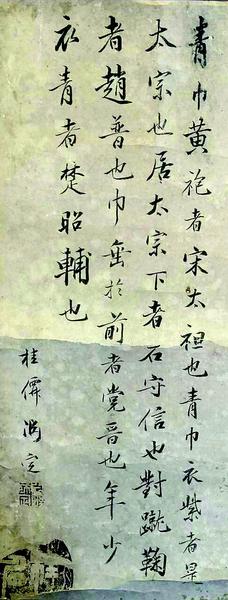 青巾黃袍者宋太祖也青巾衣紫者是
太宗也居太宗下者石守信也對蹴鞠
者趙普也巾垂於前者党晉也年少
衣青者楚昭輔也
桂定